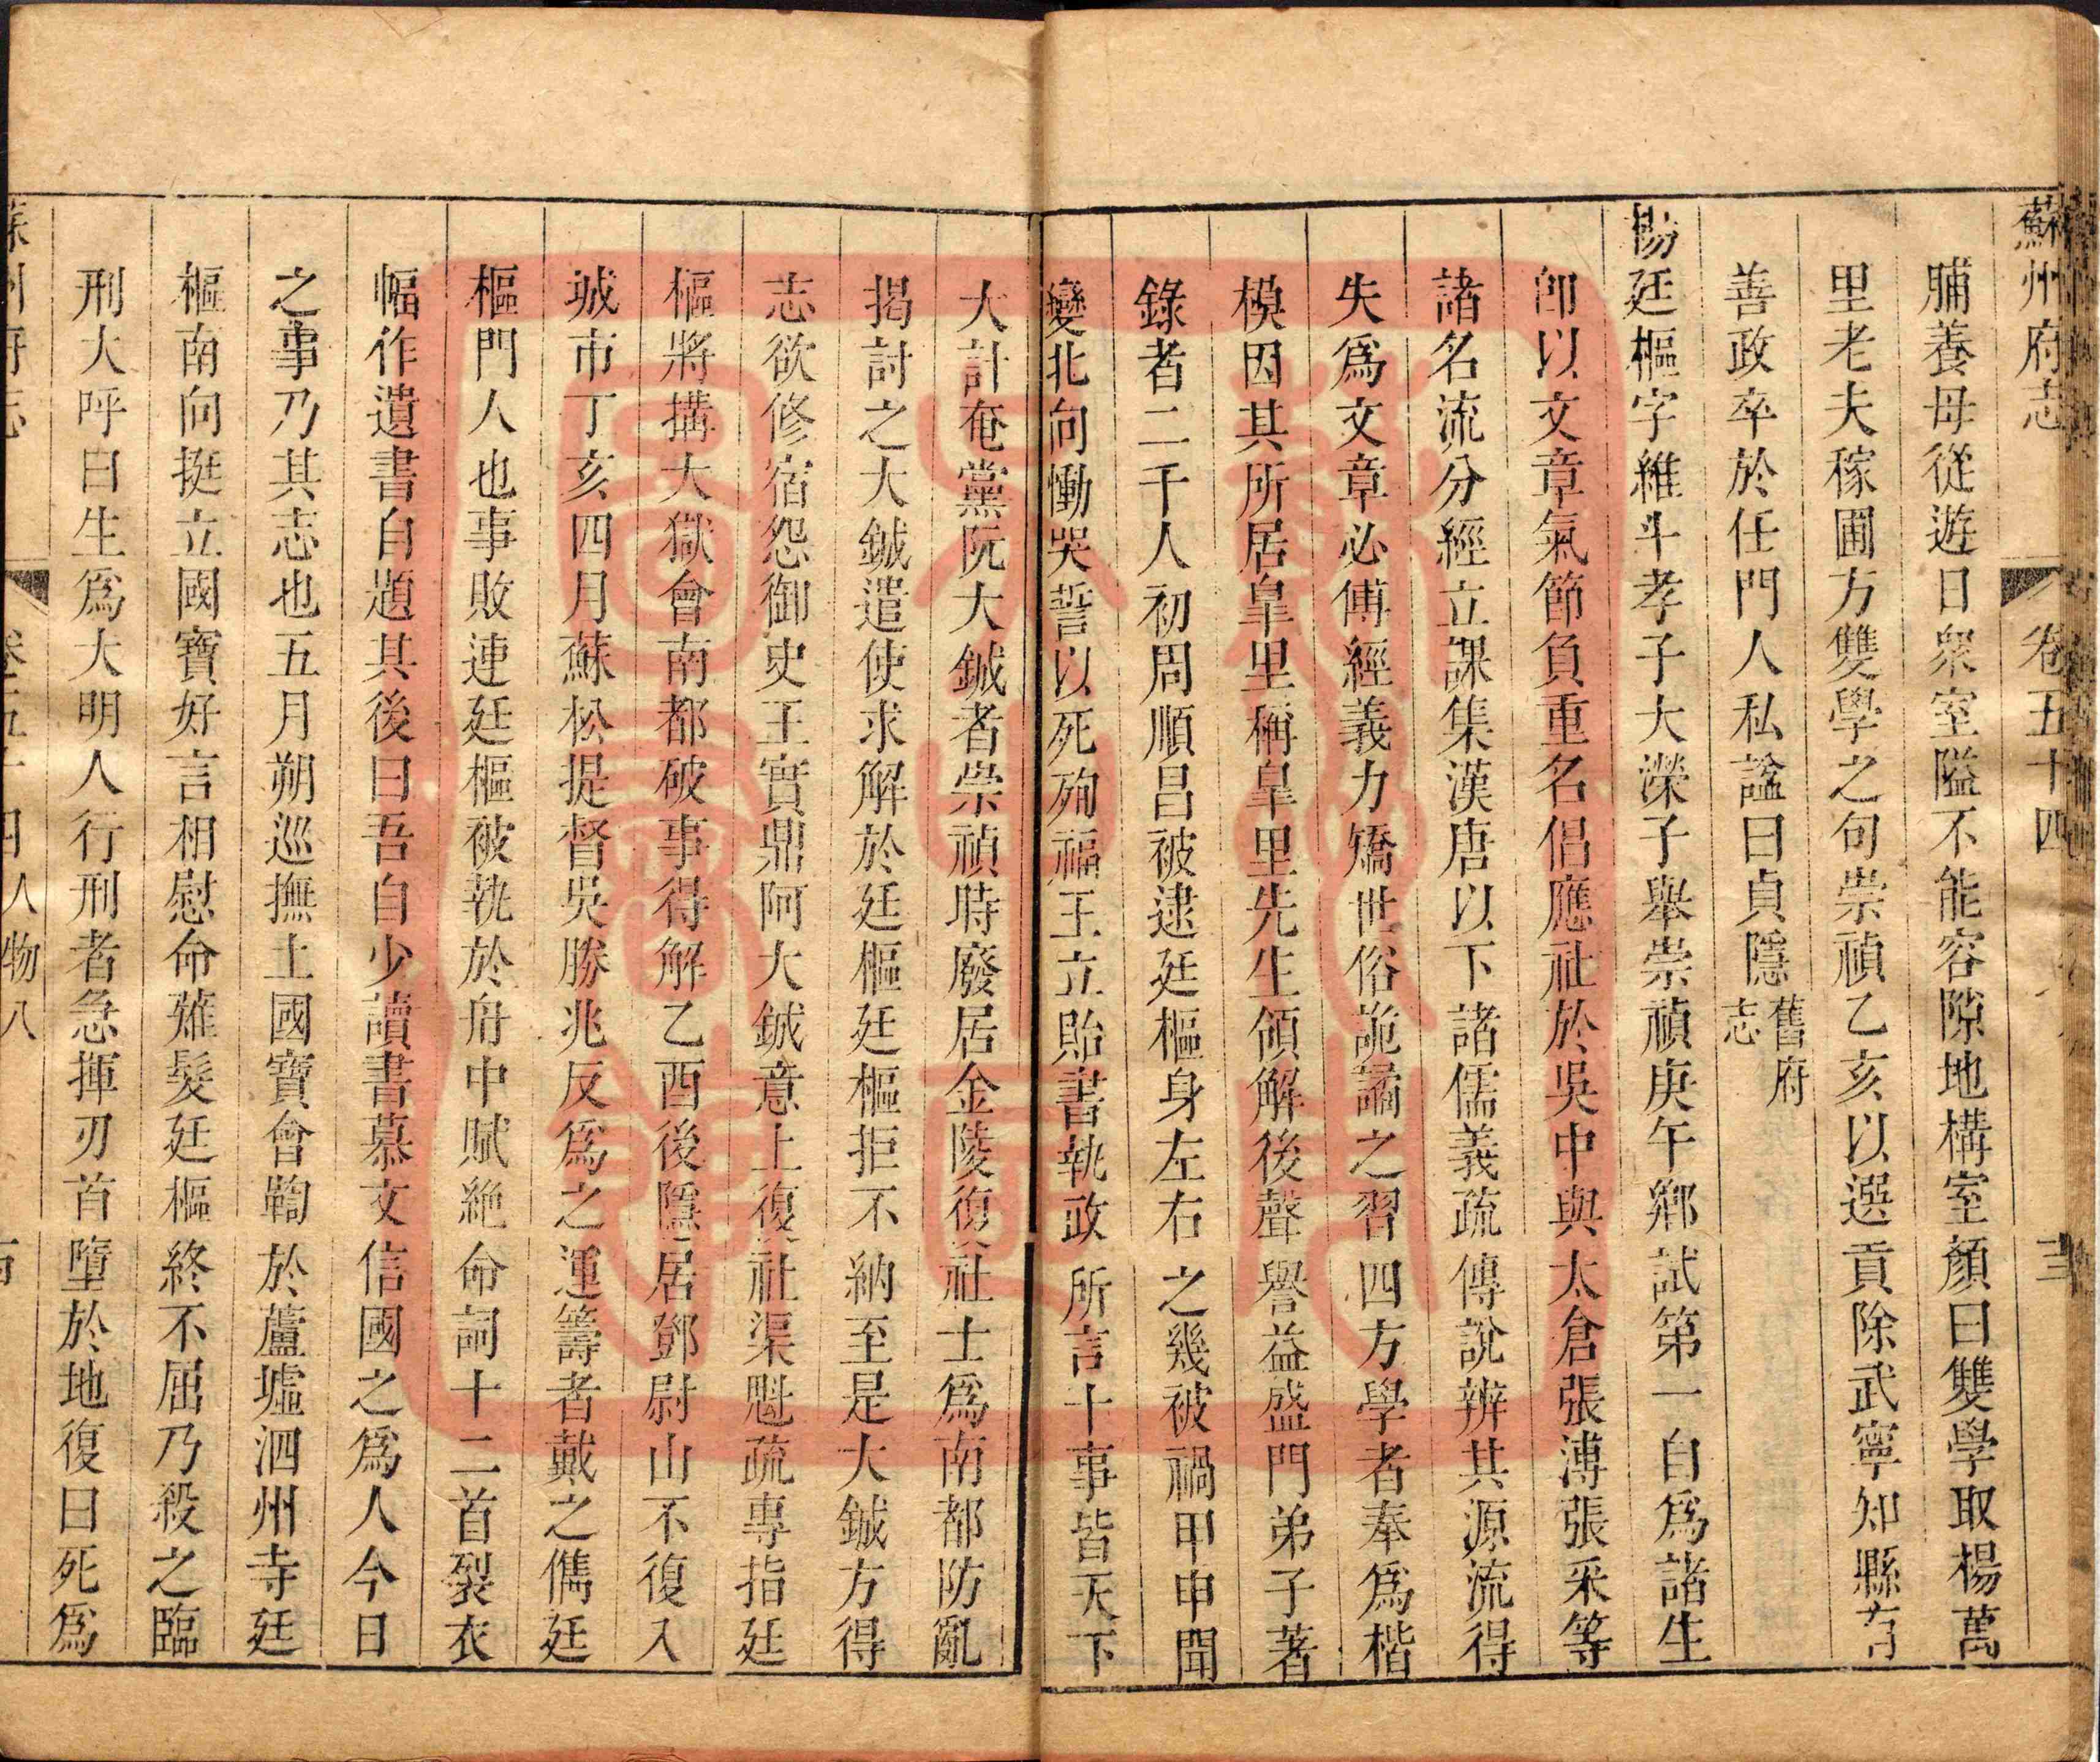 蘇州府志 卷五十四
脯養母從遊日衆室隘不能容隙地構室顏曰雙學取楊萬
里老夫稼圃方雙學之句崇禎乙亥以選貢除武寧知縣有
善政卒於任門人私諡曰貞隱舊府志
楊廷樞字維斗孝子大濚子舉崇禎庚午鄉試第一自爲諸生
卽以文章氣節負重名倡應社於吳中與太倉張溥張采等
諸名流分經立課集漢唐以下諸儒義疏傳說辨其源流得
失爲文章必傳經義力矯世俗詭譎之習四方學者奉爲楷
模因其所居皐里稱皐里先生領解後聲譽益盛門弟子著
錄者二千人初周順昌被逮廷樞身左右之幾被禍甲申聞
變北向慟哭誓以死殉福王立貽書執政所言十事皆天下
大計奄黨阮大鋮者崇禎時廢居金陵復社士爲南都防亂
揭討之大鋮遣使求解於廷樞廷樞拒不納至是大鋮方得
志欲修宿怨御史王實鼎阿大鋮意上復社渠魁疏專指廷
樞將搆大獄會南都破事得解乙酉後隱居鄧尉山不復入
城市丁亥四月蘇松提督吳勝兆反爲之運籌者戴之儁廷
樞門人也事敗連廷樞被執於舟中賦絶命詞十二首裂衣
幅作遺書自題其後曰吾自少讀書慕文信國之爲人今日
之事乃其志也五月朔巡撫土國寶會鞫於蘆墟泗州寺廷
樞南向挺立國寶好言相慰命薙髮廷樞終不屈乃殺之臨
刑大呼曰生爲大明人行刑者急揮刃首墮於地復曰死爲
人物八